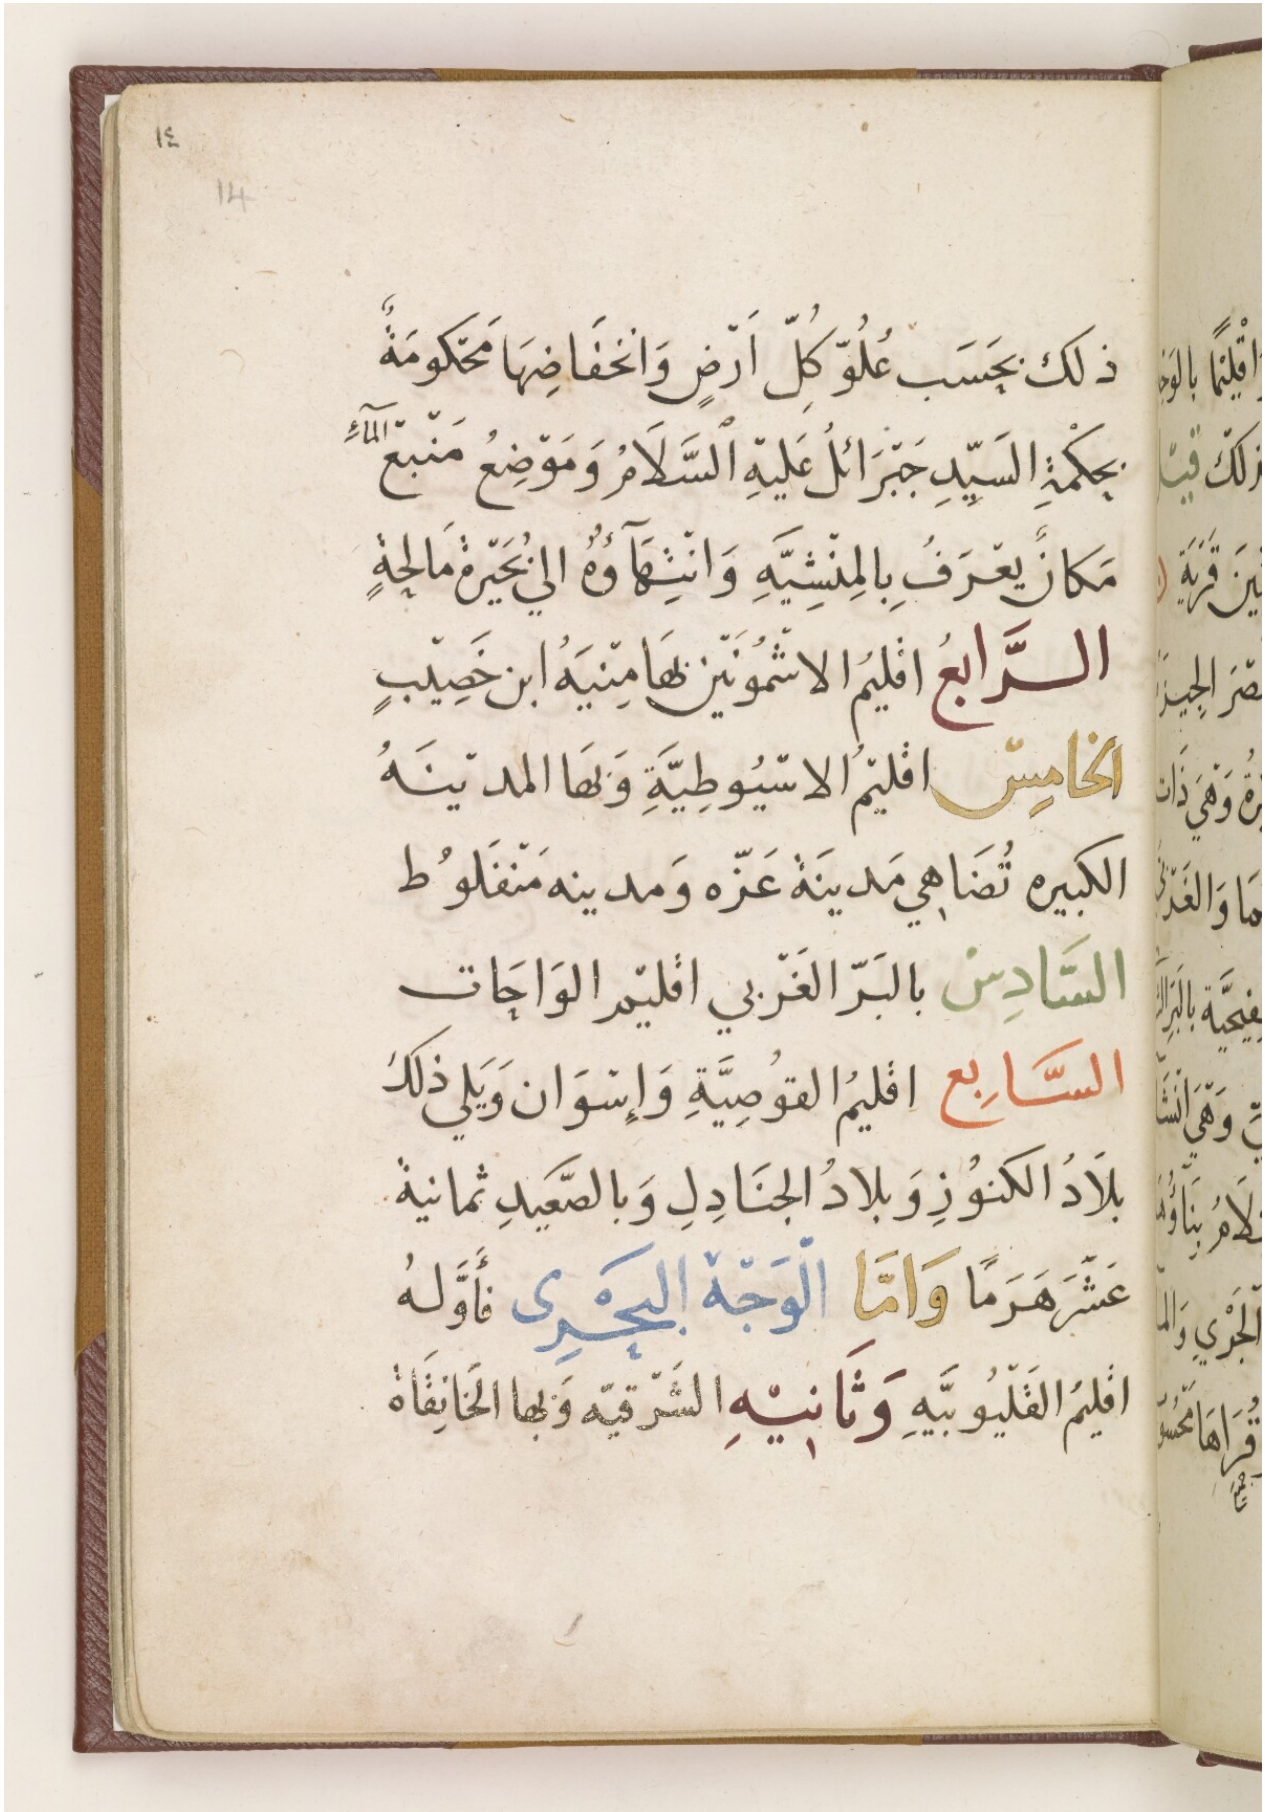 ١٤
14
ذلك بحَسَب عُلُوّ كُلّ اَرْضٍ وَانخفَاضِهَا مَحْكومَةٌ
بحِكْمَةِ السَيِّدِ جَبْرَائلُ عَليهِ السَّلَامُ وَمَوْضِعُ مَنْبع المآءِ
مَكانٌ يعْرَفُ بِالمِنْشِيَّهِ وَانْتِهَآؤُهُ الي بُحَيْرة مَالِحةٍ
الرَّابعُ اقليمُ الاشْمُونَيْن بهَا مِنْيَةُ ابن خَصِيْبٍ
الخامِسْ اقليْمُ الاسْيُوطِيَّةِ وَبهَا المديْنَهُ
الكبيره تُضَاهِي مَدينَة غَزّه وَمدينه مَنْفَلوُط
السَّادِسْ بالبَرّ الغَرْبي اقليْم الوَاحَات
السَّابِع اقليمُ القوُصِيَّةِ وَإسْوَان وَيَلي ذلكَ
بلَادُ الكنوُزِ وَبلادُ الجنَادِلِ وَبالصَّعَيدِ ثمانية
عَشَرَ هَرَمًا وَامَّا الْوَجْهْ البَحْرِى فَأوَّلهُ
اقليمُ القَلْيُوبيَّهِ وَثَانيْهِ الشَرْقيّه وَبها الخَانِقَاة